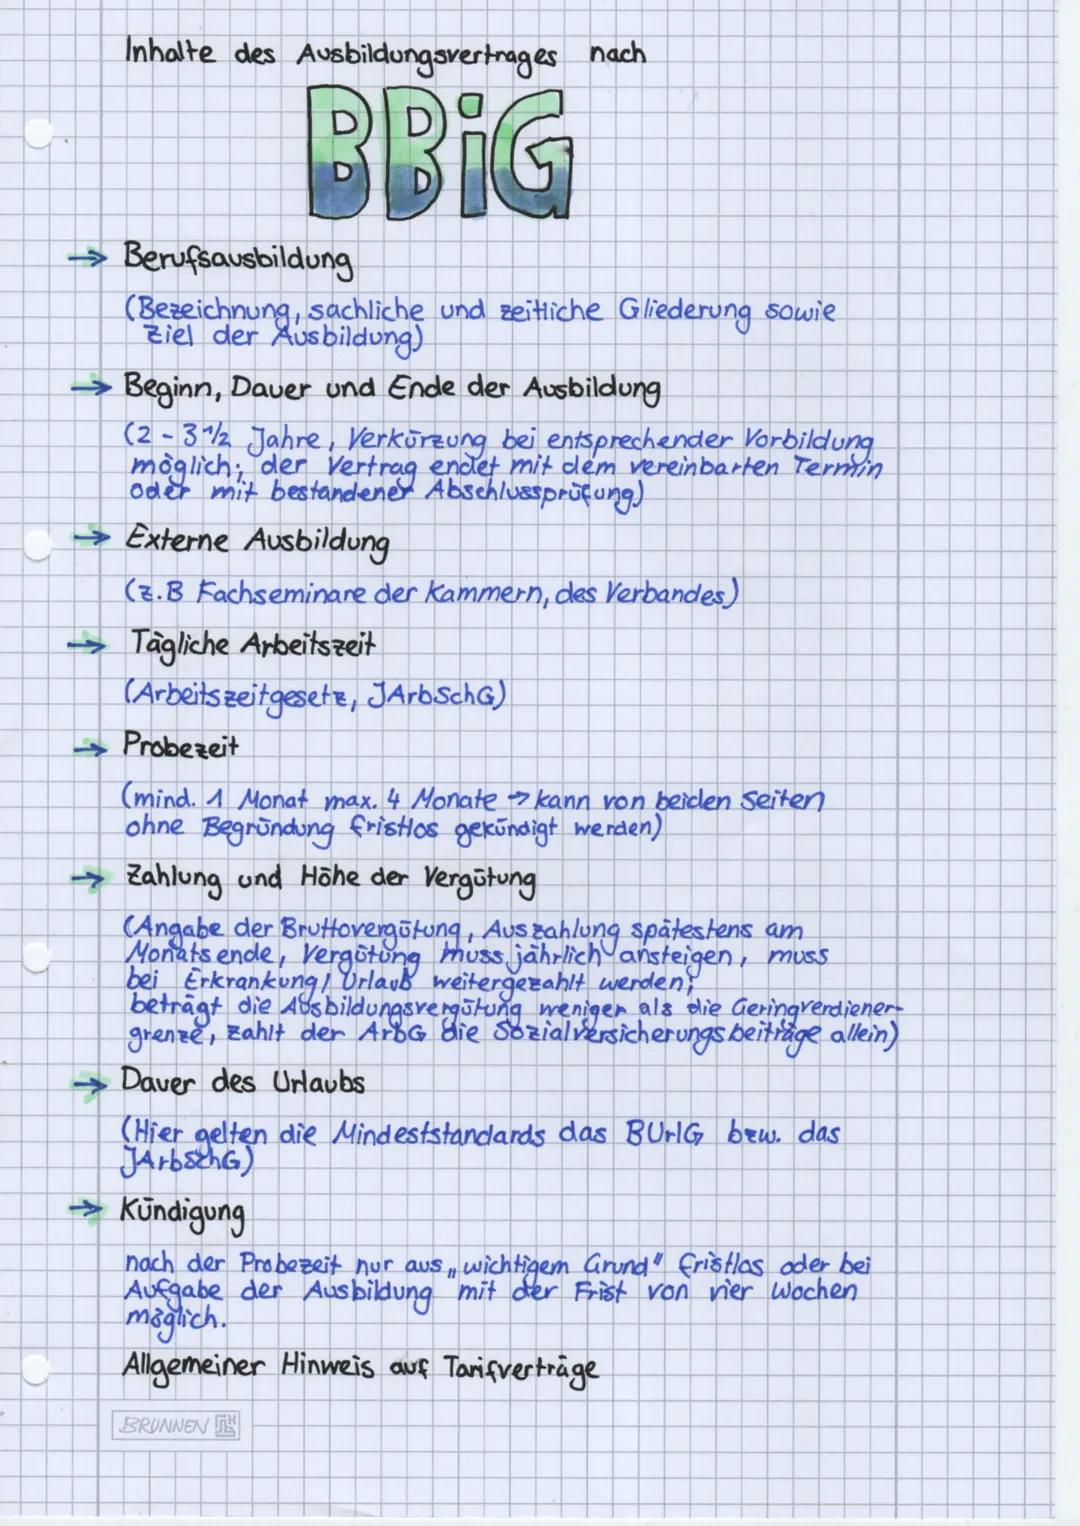 Inhalte des Ausbildungsvertrages nach
BBiG
→ Berufsausbildung
(Bezeichnung, sachliche und zeitliche Gliederung sowie
Ziel der Ausbildung)
→ Beginn, Dauer und Ende der Ausbildung
(2 - 3 1/2 Jahre, Verkürzung bei entsprechender Vorbildung
möglich; der Vertrag endet mit dem vereinbarten Termin
oder mit bestandener Abschlussprüfung)
→ Externe Ausbildung
(z.B Fachseminare der Kammern, des Verbandes)
→ Tägliche Arbeitszeit
(Arbeitszeitgesetz, JArbSchG)
→ Probezeit
(mind. 1 Monat max. 4 Monate → kann von beiden Seiten
ohne Begründung fristlos gekündigt werden)
→ Zahlung und Höhe der Vergütung
(Angabe der Bruttovergütung, Auszahlung spätestens am
Monatsende, Vergütung muss jährlich ansteigen, muss
bei Erkrankung/ Urlaub weitergezahlt werden;
beträgt die Ausbildungsvergütung weniger als die Geringverdiener-
grenze, zahlt der ArbG die Sozialversicherungsbeiträge allein)
→ Dauer des Urlaubs
(Hier gelten die Mindeststandards das BUrlG bzw. das
JArbSchG)
→ Kündigung
nach der Probezeit nur aus „wichtigem Grund" fristlos oder bei
Aufgabe der Ausbildung mit der Frist von vier Wochen
möglich.
Allgemeiner Hinweis auf Tarifverträge
BRUNNEN